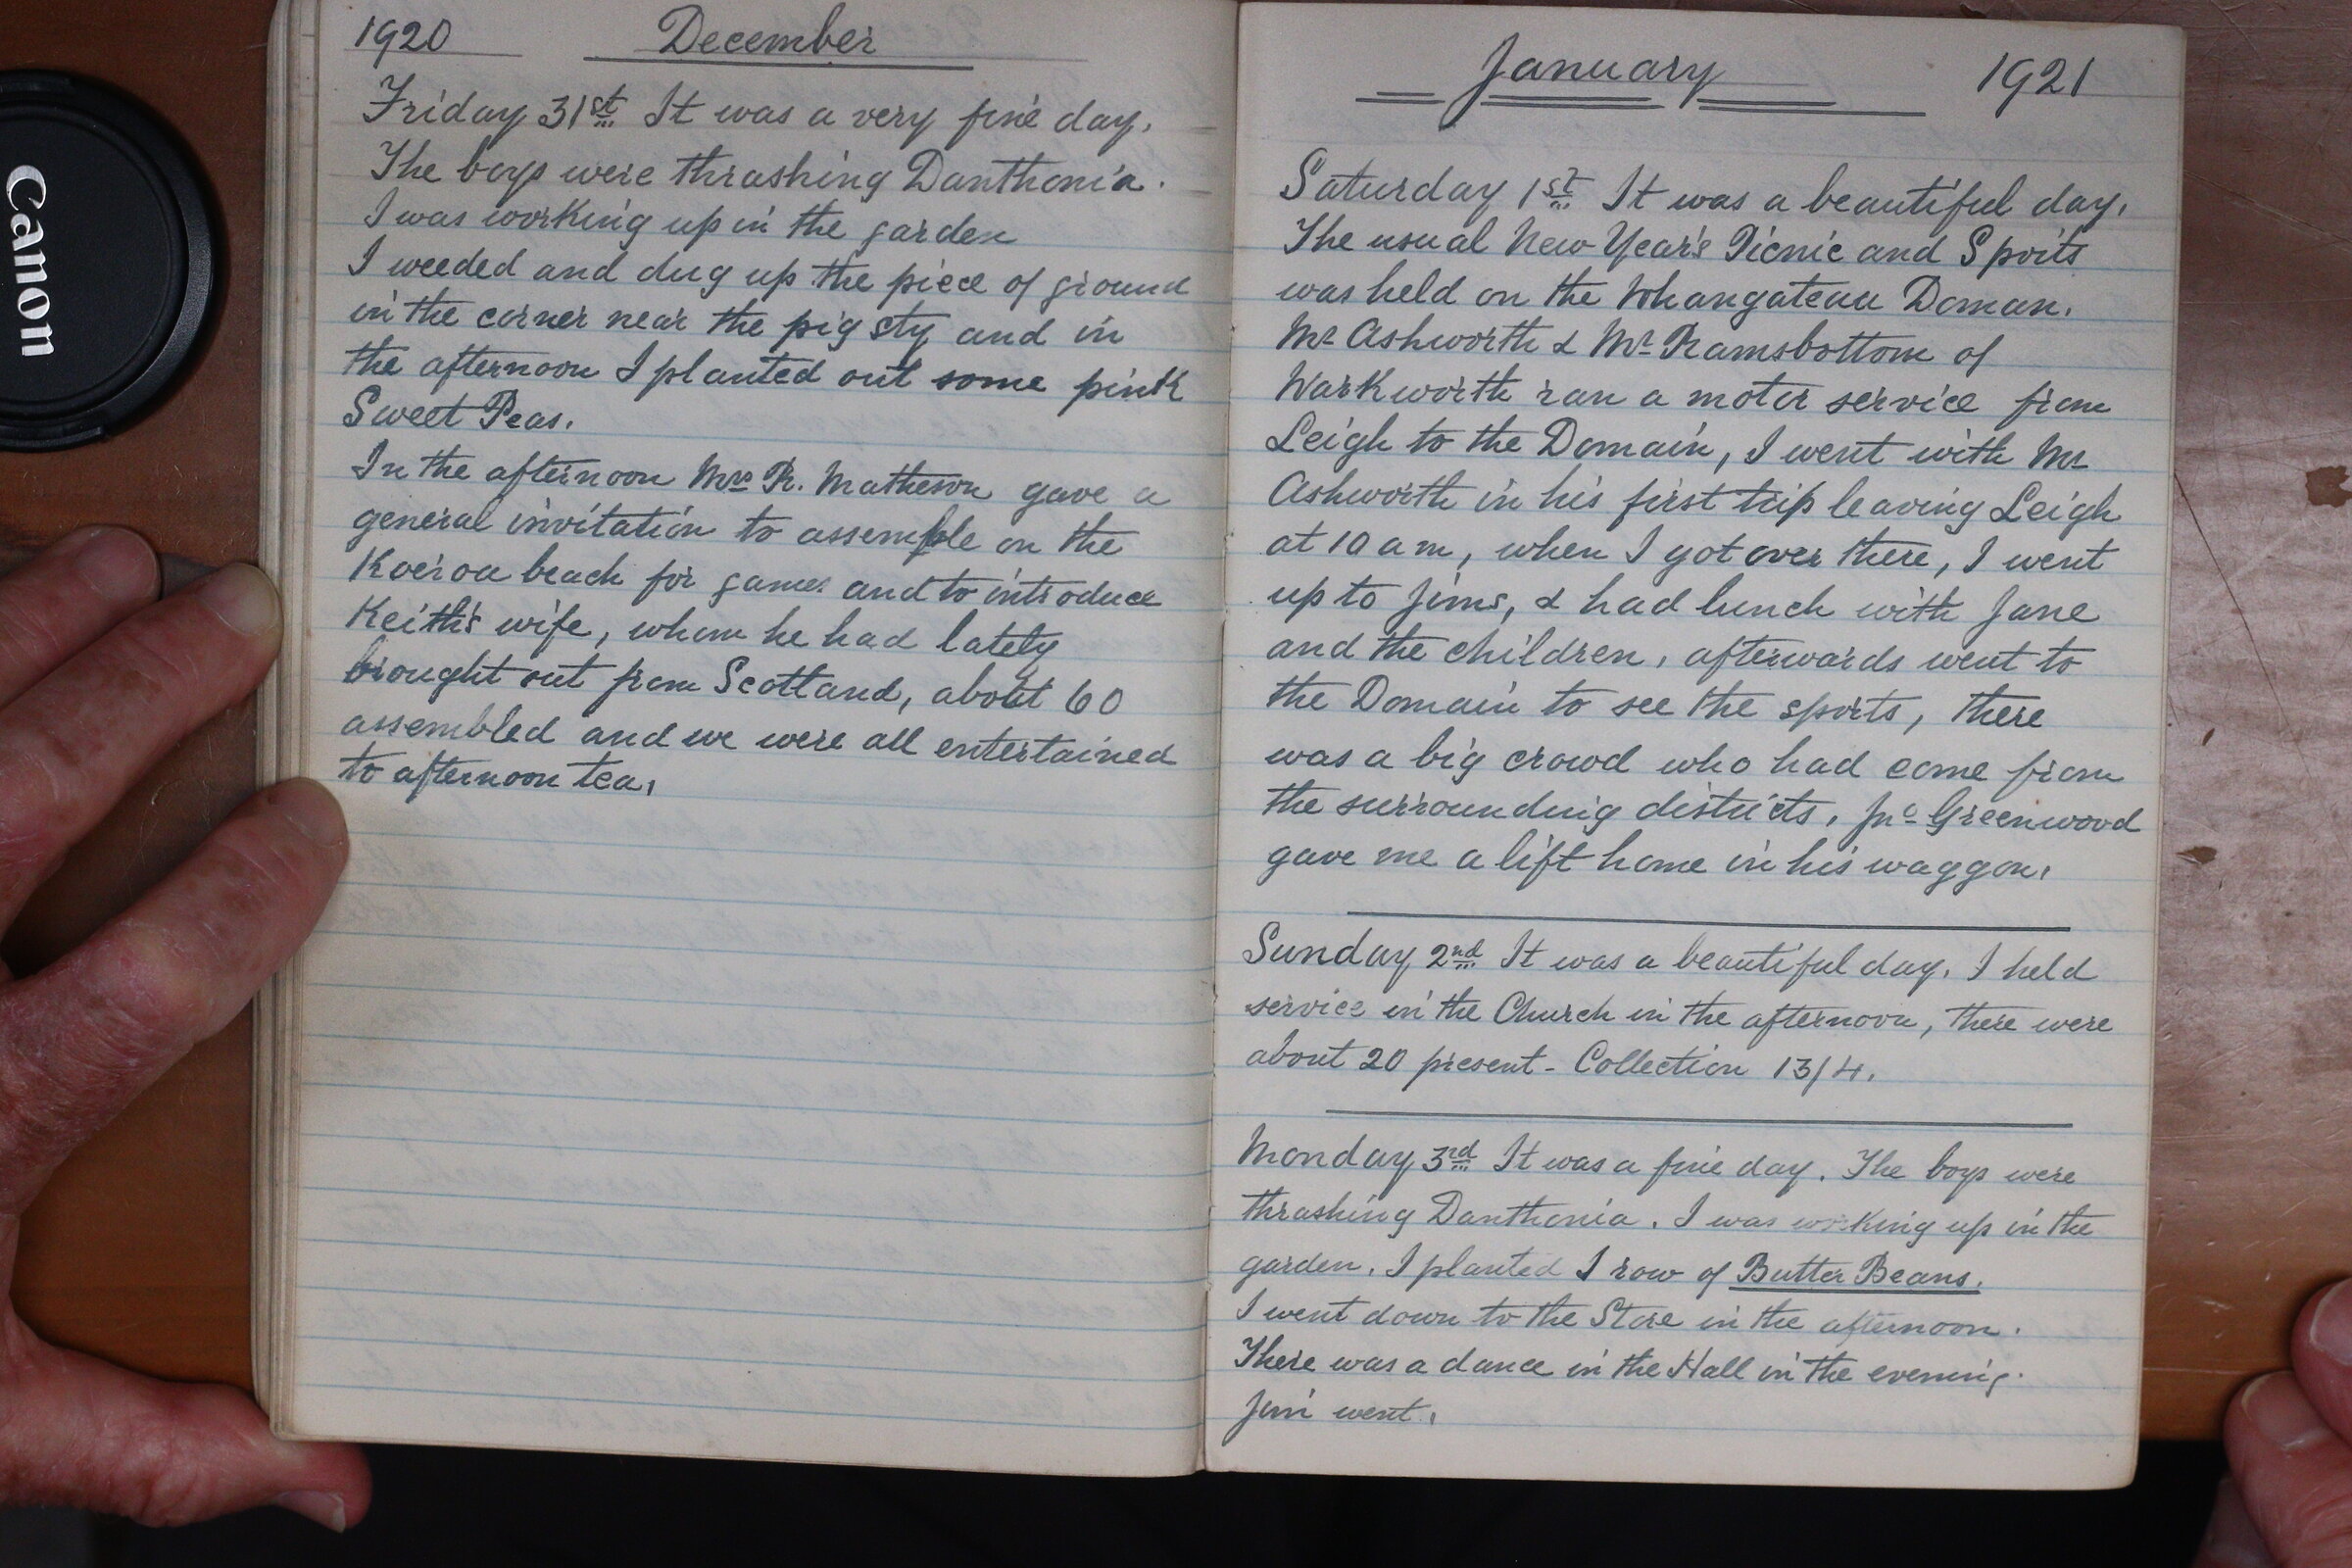 Canon
1920 December
Friday 31st It was a very fine day.
The boys were thrashing Danthonia.
I was working up in the garden
I weeded and dug up the piece of ground
in the corner near the pig sty and in
the afternoon I planted out some pink
Sweet Peas.
In the afternoon Mrs R. Matheson gave a
general invitation to assemble on the
Koeroa beach for games and to introduce
Keith's wife, whom he had lately
brought out from Scotland, about 60
assembled and we were all entertained
to afternoon tea,
January 1921
Saturday 1st It was a beautiful day,
The usual New Year's Picnic and Sports
was held on the Whangateau Doman.
Mr Ashworth & Mr Ramsbottom of
Warkworth ran a motor service from
Leigh to the Domain, I went with Mr
Ashworth in his first trip leaving Leigh
at 10 am, when I got over there, I went
up to Jims, & had lunch with Jane
and the children, afterwards went to
the Domain to see the sports, there
was a big crowd who had come from
the surrounding districts, Jno Greenwood
gave me a lift home in his waggon,
Sunday 2nd It was a beautiful day, I held
service in the Church in the afternoon, there were
about 20 present - Collection 13/4.
Monday 3rd It was a fine day. The boys were
thrashing Danthonia. I was working up in the
garden. I planted 1 row of Butter Beans.
I went down to the Store in the afternoon.
There was a dance in the Hall in the evening.
Jim went.